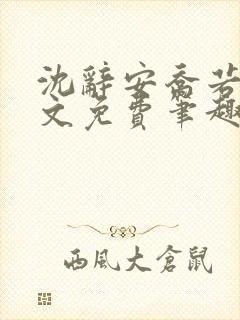 沈辭安喬若
文免費筆趣
西風大倉鼠